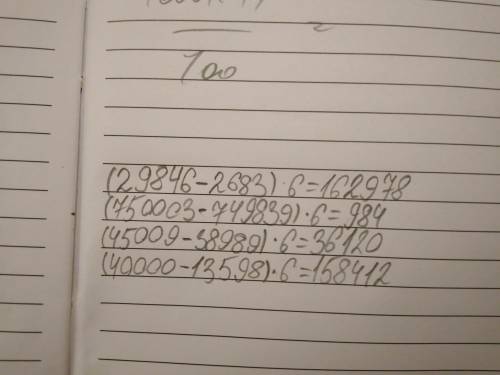 100
(29846-2683)·6=162978
(750003-749839)·6=984
(45009-38989)·6=36120
(40000-13598)·6=158412